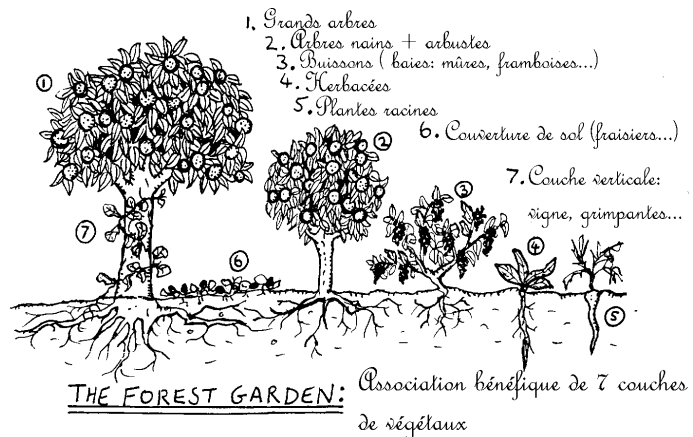 1. Grands arbres
2. Arbres nains + arbustes
3. Buissons ( baies: mûres, framboises...)
4. Herbacées
5. Plantes racines
6. Couverture de sol (fraisiers...)
7. Couche verticale:
vigne, grimpantes...
1
2
3
7
6
4
5
THE FOREST GARDEN: Association bénéfique de 7 couches
de végétaux